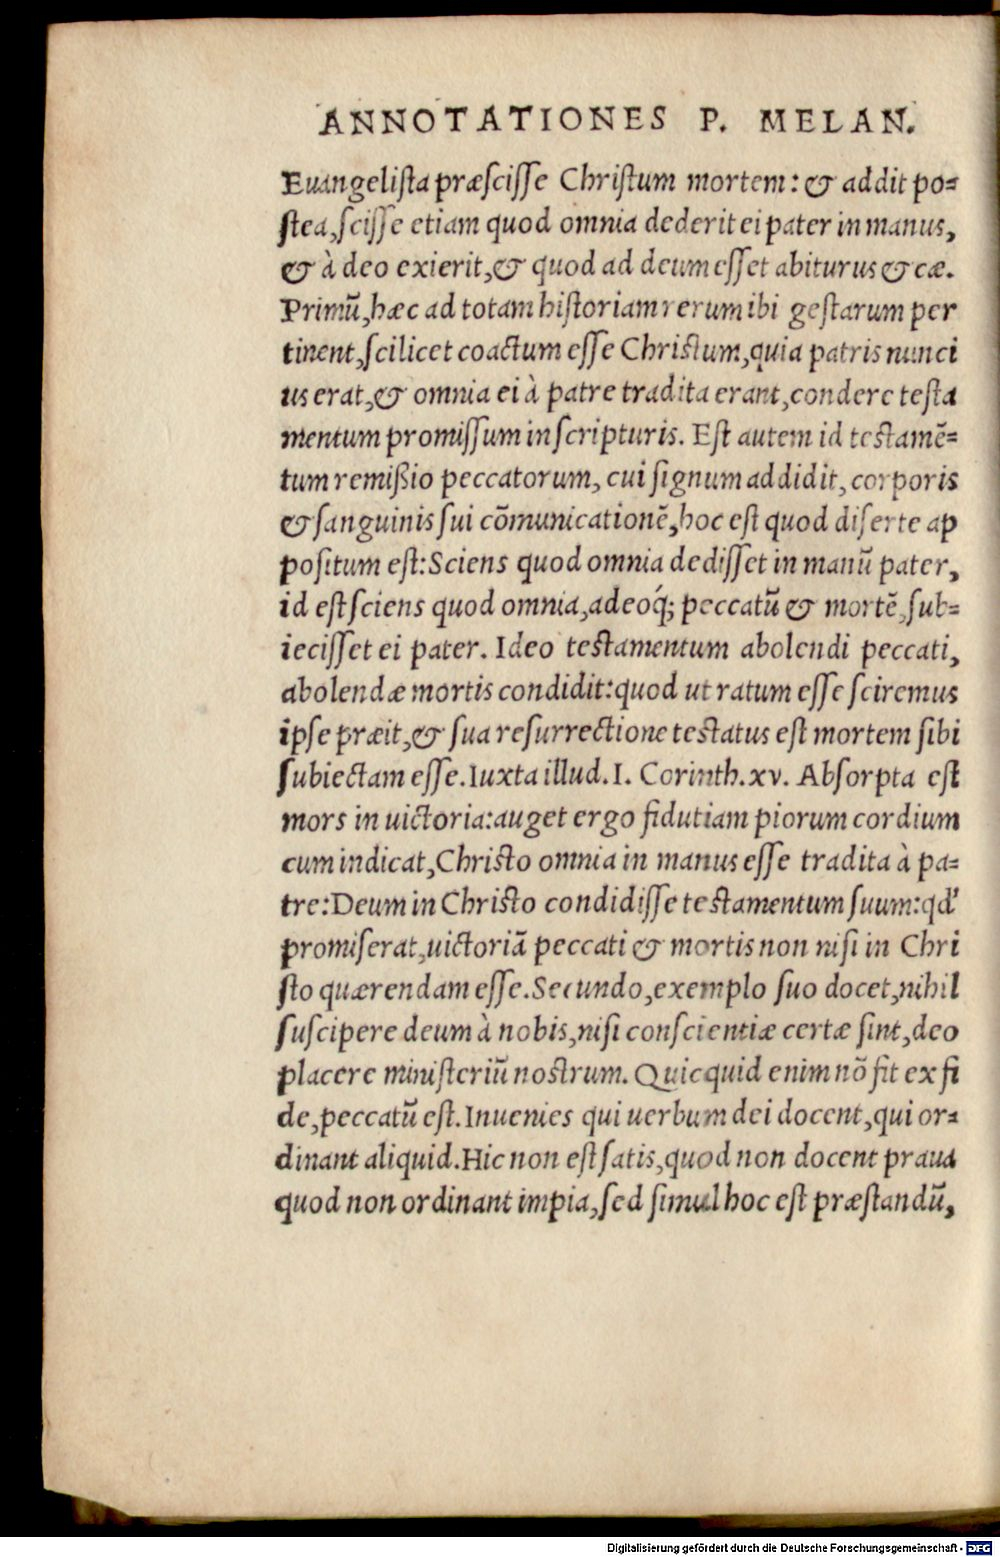 ANNOTATIONES P. MELAN.
Euangeliſta præſciſſe Chriſtum mortem: & addit po=
ſtea, ſciſſe etiam quod omnia dederit ei pater in manus,
& à deo exierit, & quod ad deum eſſet abiturus & cæ.
Primũ, hæc ad totam hiſtoriam rerum ibi geſtarum per
tinent, ſcilicet coactum eſſe Chriſtum, quia patris nunci
us erat, & omnia ei à patre tradita erant, condere teſta
mentum promiſſum in ſcripturis. Eſt autem id teſtamẽ=
tum remiſsio peccatorum, cui ſignum addidit, corporis
& ſanguinis ſui cõmunicationẽ, hoc eſt quod diſerte ap
poſitum eſt: Sciens quod omnia dediſſet in manũ pater,
id eſt ſciens quod omnia, adeoq́; peccatũ & mortẽ, ſub=
ieciſſet ei pater. Ideo teſtamentum abolendi peccati,
abolendæ mortis condidit: quod ut ratum eſſe ſciremus
ipſe præit, & ſua reſurrectione teſtatus eſt mortem ſibi
ſubiectam eſſe. Iuxta illud. I. Corinth. xv. Abſorpta eſt
mors in uictoria: auget ergo fidutiam piorum cordium
cum indicat, Chriſto omnia in manus eſſe tradita à pa=
tre: Deum in Chriſto condidiſſe teſtamentum ſuum: qd'
promiſerat, uictoriã peccati & mortis non niſi in Chri
ſto quærendam eſſe. Secundo, exemplo ſuo docet, nihil
ſuſcipere deum à nobis, niſi conſcientiæ certæ ſint, deo
placere miniſteriũ noſtrum. Quicquid enim nõ fit ex fi
de, peccatũ eſt. Inuenies qui uerbum dei docent, qui or=
dinant aliquid. Hic non eſt ſatis, quod non docent praua
quod non ordinant impia, ſed ſimul hoc eſt præſtandũ,
Digitalisierung gefördert durch die Deutsche Forschungsgemeinschaft - DFG